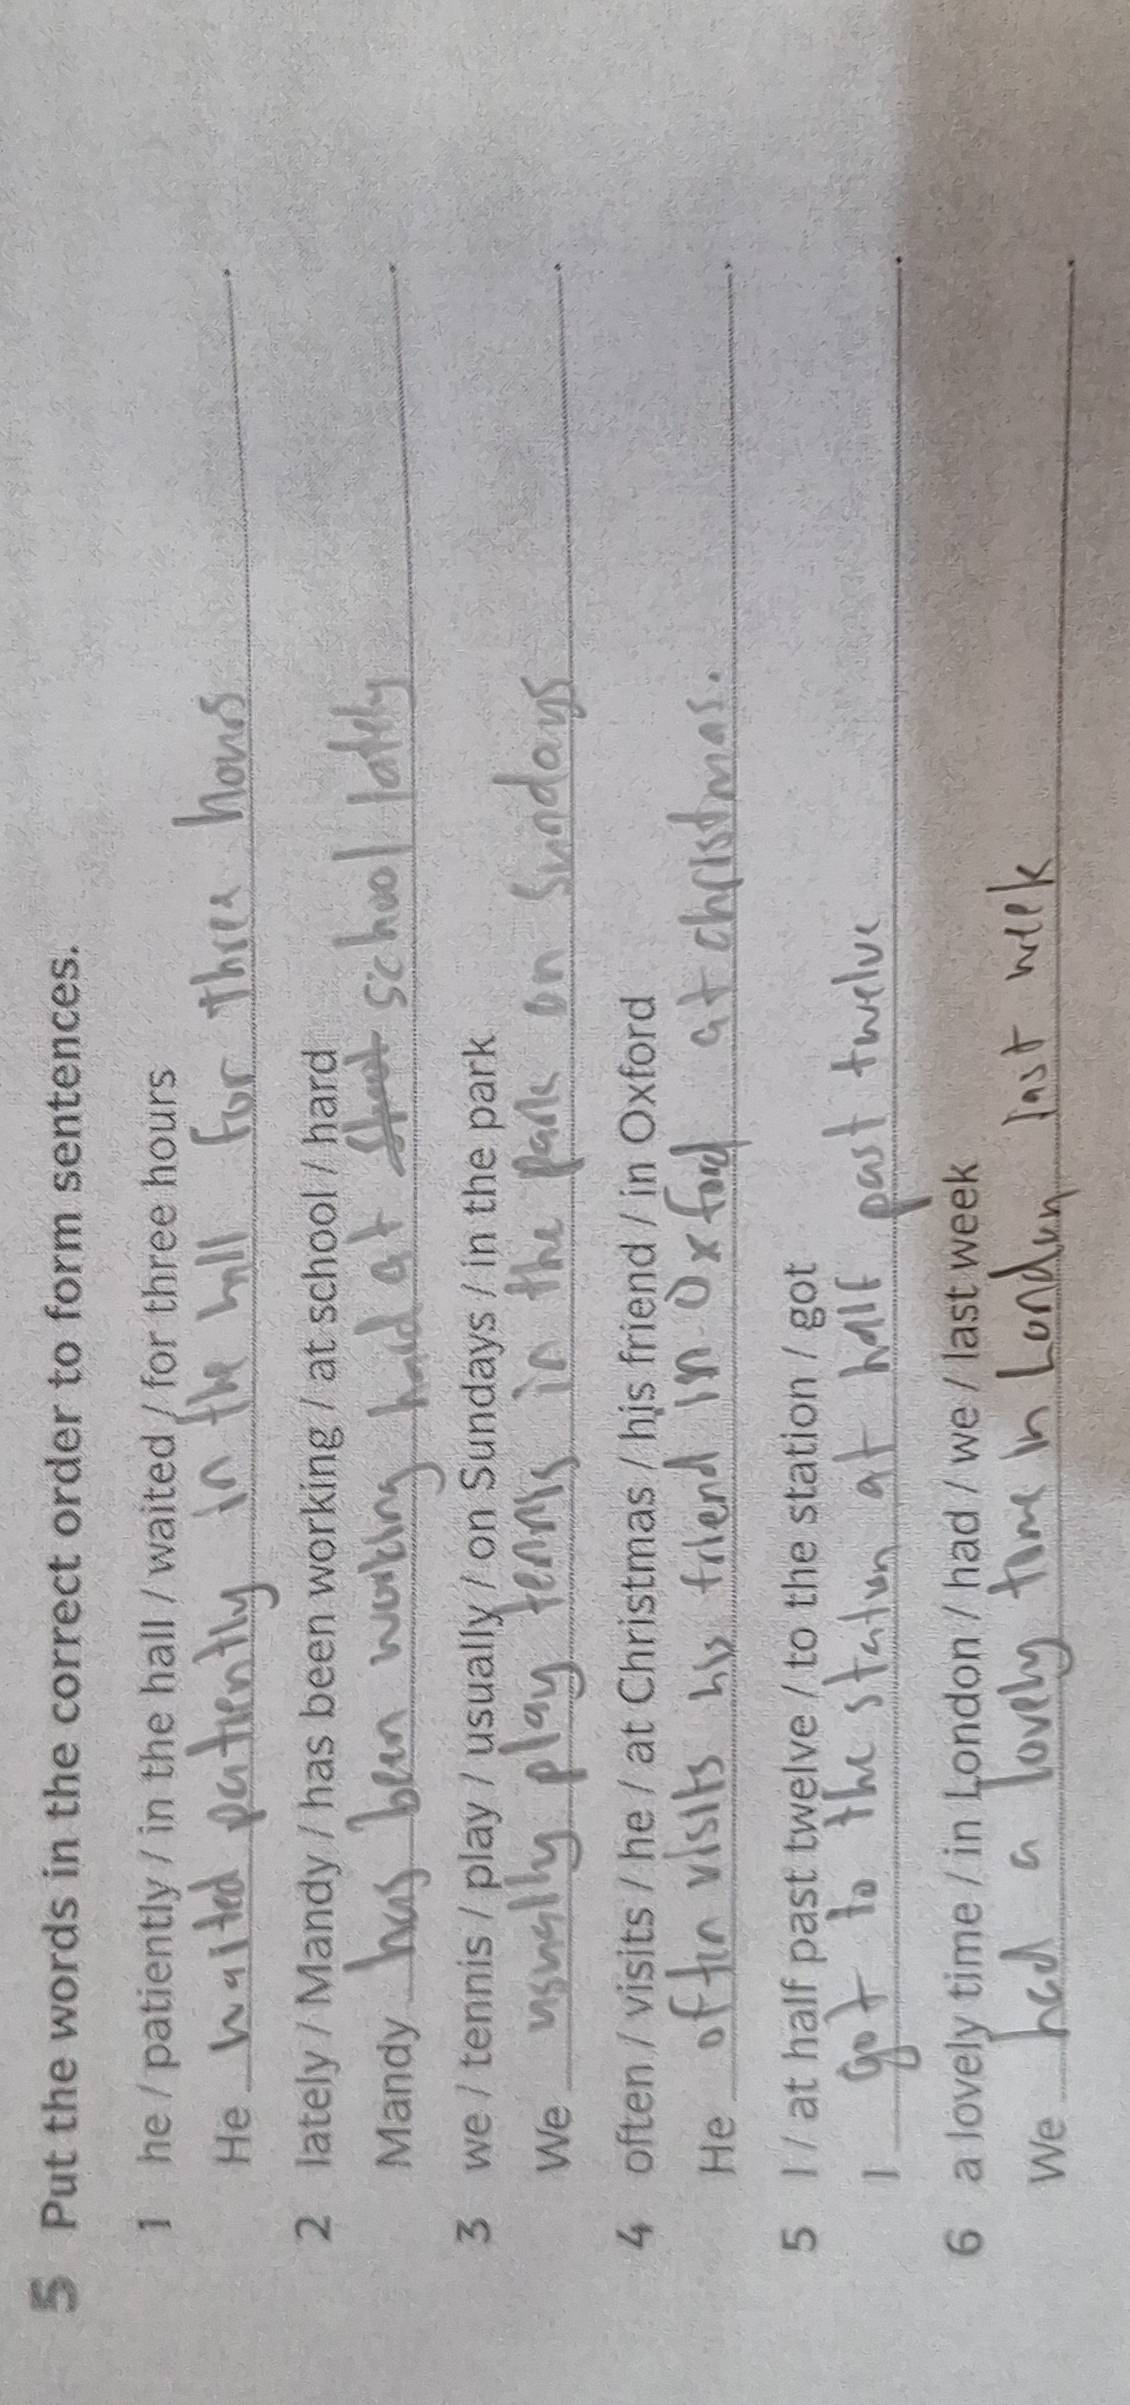 5 Put the words in the correct order to form sentences.
1 he / patiently / in the hall / waited / for three hours
He waited patiently in the hall for three hours.
2 lately / Mandy / has been working / at school / hard
Mandy has been working hard at school lately.
3 we / tennis / play / usually / on Sundays / in the park
We usually play tennis in the park on Sundays.
4 often / visits / he / at Christmas / his friend / in Oxford
He often visits his friend in Oxford at christmas..
5 I / at half past twelve / to the station / got
I got to the station at half past twelve.
6 a lovely time / in London / had / we / last week
We had a lovely time in London last week.